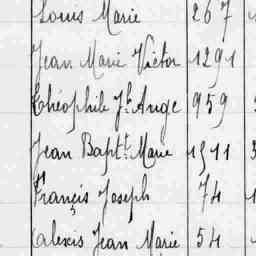 Louis Marie 267
Jean Marie Victor 1291
Théophile Jh Ange 959
Jean Bapt.t Marie 1511
François Joseph 74
alexis Jean Marie 54